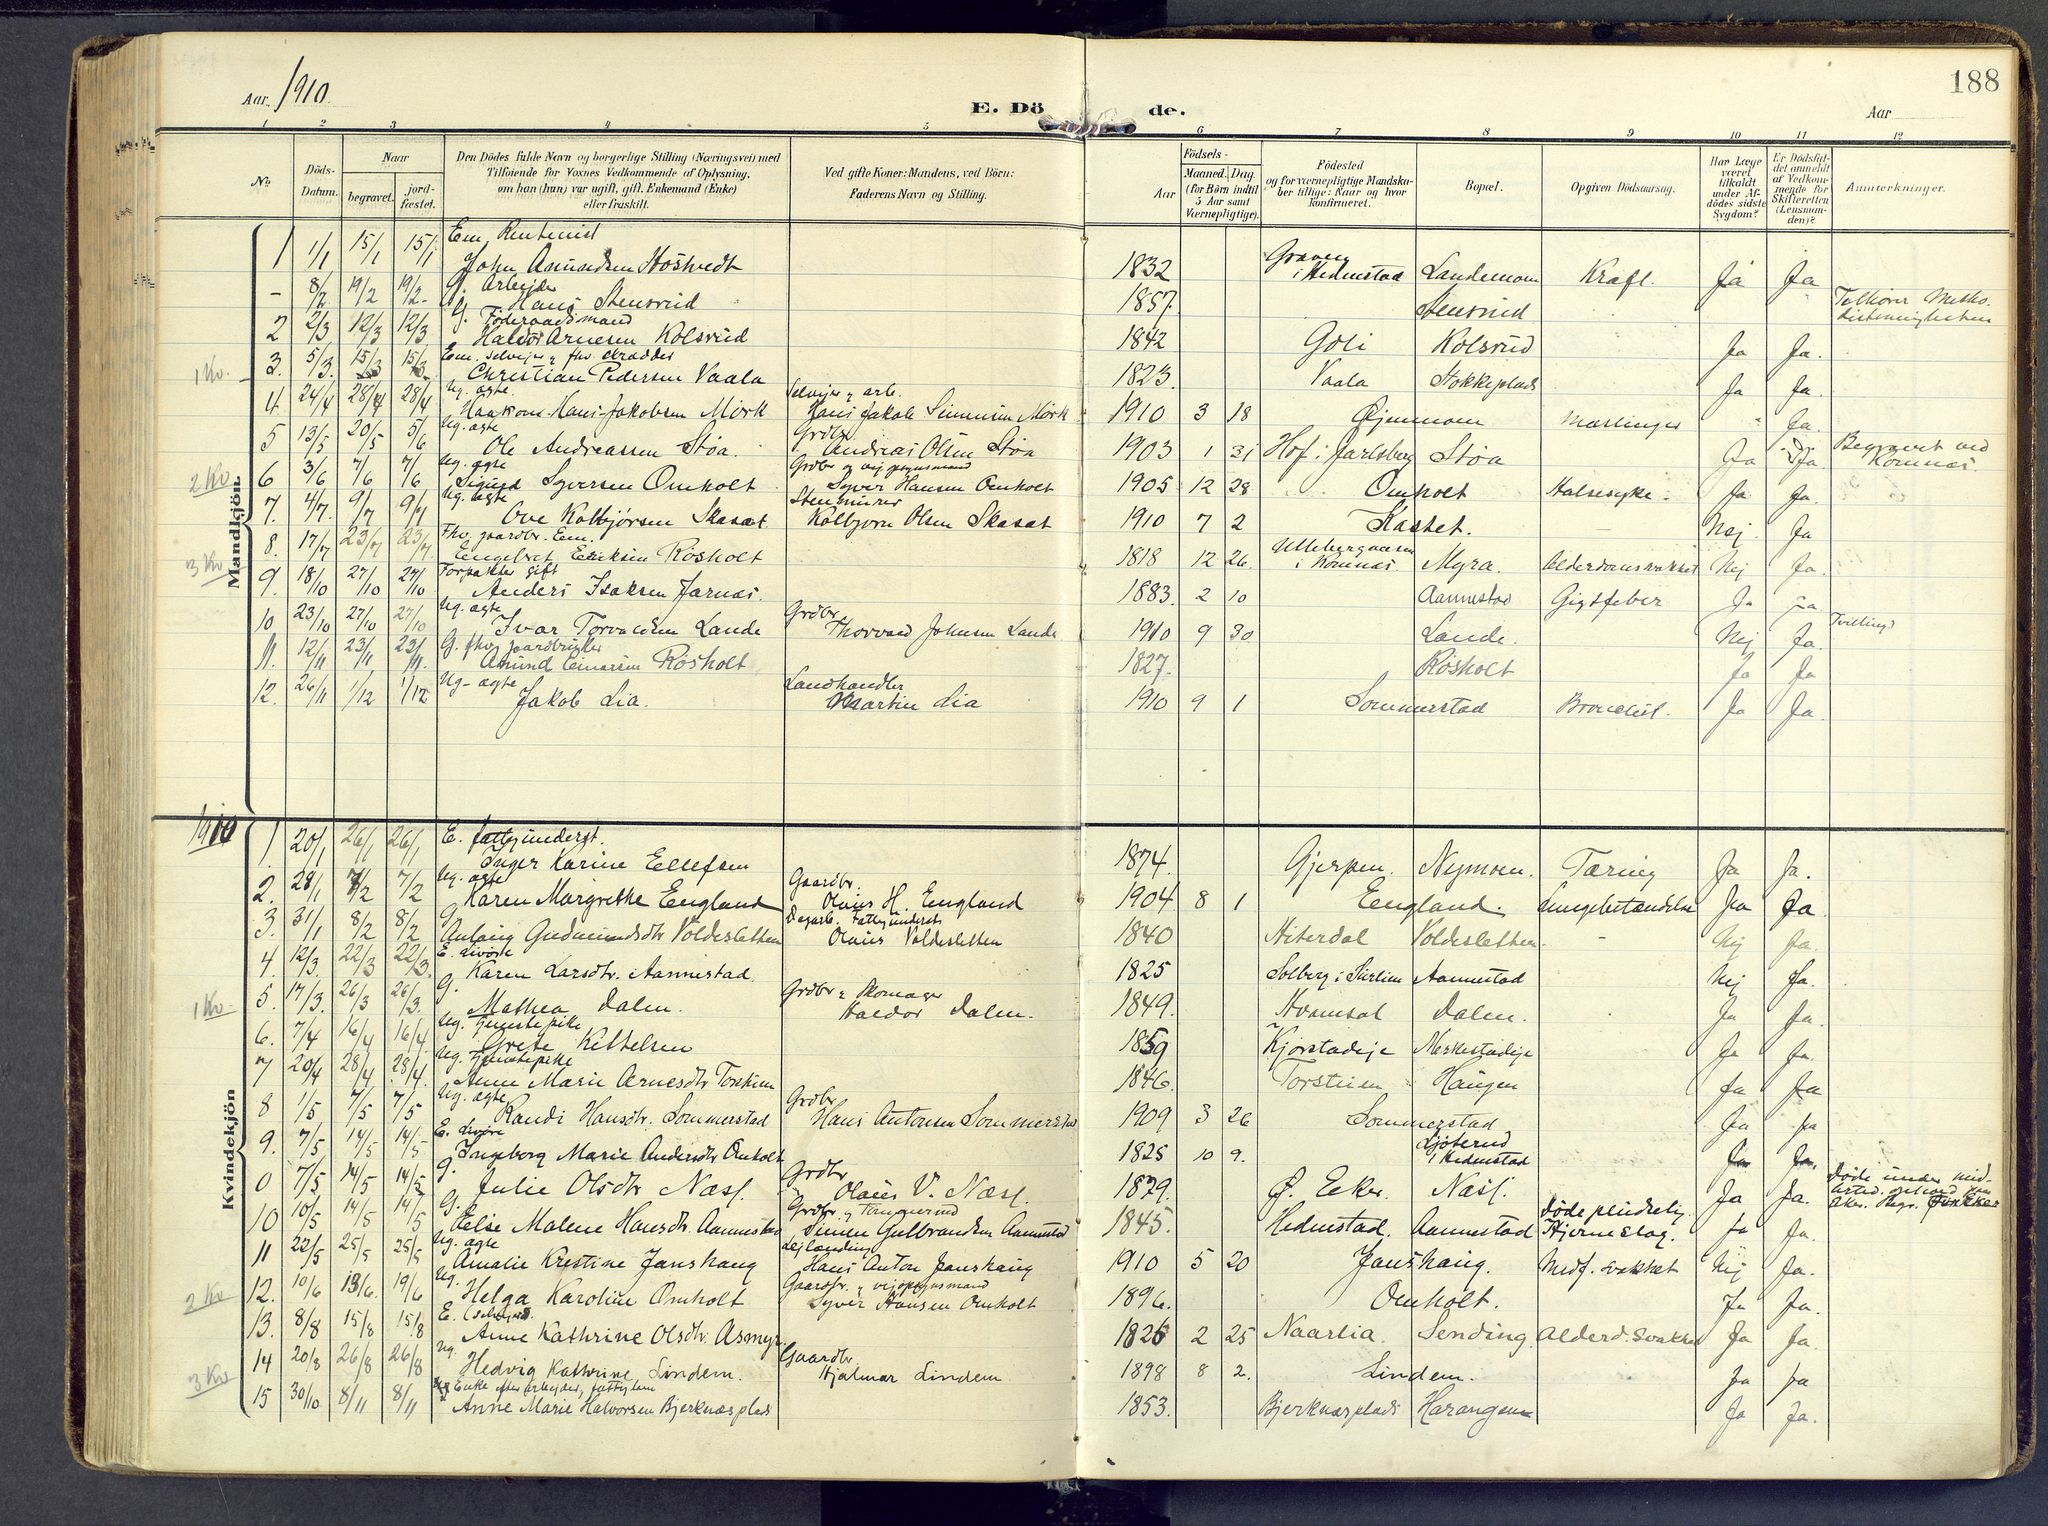 188
Aar 1910
E. Dö de.
Aar
1 2 3 4 5 6 7 8 9 10 11 12
No. Döds-Datum. Naar begravet. jordfæstet. Den Dödes fulde Navn og borgerlige Stilling (Næringsvei) med Tilföiende for Voxnes Vedkommende af Oplysning, om han (hun) var ugift, gift, Enkemand (Enke) eller fraskilt. Ved gifte Koner: Mandens, ved Börn: Faderens Navn og Stilling. Födsels- Aar Maaned. Dag. (for Börn indtil 5 Aar samt Værnepligtige). Födested og for værnepligtige Mandskaber tillige: Naar og hvor konfirmeret. Bopæl. Opgiven Dödsaarsag. Har Læge været tilkaldt under Afdödes sidste Sygdom? Er Dödsfaldet anmeldt af Vedkommende for Skifteretten (Lensmanden)? Anmærkninger.
Mandkjön
1 1/1 15/1 15/1 Em. Rentenist
John Amundsen Stostvedt 1832 i Hedenstad Landemoen Kræft. Ja Ja
- 8/2 19/2 19/2 G. Arbejder
Hans Stensrud 1857. Stensrud
2 2/3 12/3 12/3 G. Föderaadsmand
Haldor Arnesen Kolsrud 1842 Goli Kolsrud Ja Ja.
1 Kv. 3. 5/3. 15/3 15/3 Em. selvejer, fhv skrædder
Christian Pedersen Vaala 1823. Vaala Stokkeplads Ja Ja.
4 24/4 28/4 28/4 Ug. ægte Selvejer, arb.
Haakon Hans Jakobsen Mørk Hans Jakob Simensen Mørk 1910 3 18 Øjenmoen Mæslinger " Ja.
5 13/5 20/5 5/6 Ug. ægte Grdbr.
Ole Andreassen Støa. Andreas Olsen Støa 1903 1 31 Hof i Jarlsberg Støa Ja Ja Begravet ved Komnæs
2 Kv 6 3/6 7/6 7/6 Ug. ægte Grdbr og vejopsynsmand
Sigurd Syversen Omholt Syver Hansen Omholt 1905 12 28 Omholt Halsesyke. Ja Ja
7. 4/7. 9/7 9/7 Ug. ægte Stenmurer
Ove Kolbjørsen Skasæt Kolbjørn Olsen Skasæt 1910 7 2 Nej. Ja
3 Kv 8. 17/7 23/7 23/7. Fhv. gaardbr. Em.
Engebret Eriksen Røsholt 1818 12 26 i Komnæs. Myra. Nej Ja.
9. 18/10 27/10 27/10 gift
Anders Isaksen Jarnæs. 1883. 2 10 Aannestad Gigtfeber Ja Ja.
10 23/10 27/10 27/10 Ug. ægte Grdbr
Ivar Torvaldsen Lande Thorvald Johnsen Lande 1910 9 30 Lande. Nej Ja. Tvilling
11. 12/11 23/11 23/11. G. fhv. gaardbruger
Amund Einarsen Røsholt 1827. Røsholt Ja Ja
12. 26/11 1/12 1/12 Ug. ægte Landhandler
Jakob Lia. Martin Lia 1910 9 1 Sommerstad Ja Ja.
1910
Kvindekjön
1. 20/1 26/1 26/1 E. fattigunderst.
Inger Karine Ellefsen 1874. Gjerpen. Nymoen. Tæring Ja Ja.
2. 28/1 7/2 7/2 Ug. ægte Gaardbr.
Karen Margrethe Eengland Olaus H. Eengland 1904 8 1 Eengland. Lungebetændelse Ja Ja
3. 31/1 8/2 8/2 G. Dagarb. Fattigunderst
Anlaug Gudmundsdtr Voldesletten Olaus Voldesletten 1840 Hiterdal Voldesletten. - Nej Ja.
4 12/3. 22/3 22/3. E. livøre
Karen Larsdtr. Aannestad 1825 Aannestad Nej Ja.
1 Kv 5. 17/3. 26/3 26/3. G. Grdbr, Skomager
Mathea Dalen. Haldor Dalen. 1849. Hvamsal Dalen. Ja Ja.
6. 7/4 16/4 16/4. Ug. tjenestepike
Grete Kittelsen 1859 Kjørstadeje Merkestadeje Ja Ja.
7 20/4 28/4 28/4. Ug. tjenestepike
Anne Marie Arnesdtr Torstuen 1846. Torstuen Haugen Ja Ja
8 1/5 7/5 7/5 Ug. ægte Grdbr
Randi Hansdtr. Sommerstad Hans Antonsen Sommerstad 1909 3 26 Sommerstad Ja Ja
9. 7/5 14/5 14/5 E. Livøre
Ingeborg Marie Andersdtr Omholt 1825 10 9. i Hedenstad Ja Ja.
0 7/5 14/5 14/5 G. Grdbr
Julie Olsdtr Næss. Olaus V. Næss. 1879. Ø. Eker. Næss. Ja Ja.
10 10/5 14/5 14/5 G. Grdbr
Else Malene Hansdtr Aannestad Simen Gulbrandsen Aannestad 1845. Hedenstad. Aannestad Døde pludselig. Hjerneslag. Ja Ja.
11 22/5 25/5 25/5 Ug. ægte Lejlænding
Amalie Kristine Janshaug Hans Anton Janshaug 1910 5 20 Janshaug. Medf. svakhet Nej Ja.
2 Kv 12. 10/6 19/6 Ug. Gaardbr. & vejopsynsmand
Helga Karoline Omholt Syver Hansen Omholt 1896. Omholt. Ja Ja.
13. 8/8 15/8 15/8 E.
Anne Kathrine Olsdtr. Asmyr. 1826 2 25 Naarlia. Sending. Alderd. svakhet Ja Ja
14 20/8 26/8 26/8 Ug. Gaardbr
Hedvig Kathrine Lindem. Hjalmar Lindem 1898 8 2. Lindem. Ja Ja
3 Kv 15 30/10 8/11 8/11 Enke efter arbejder, fattiglem
Anne Marie Halvorsen Bjerknæsplads 1853. Bjerknæsplads Harangen Ja Ja.